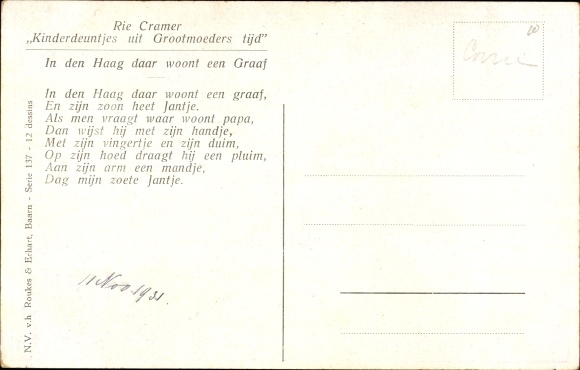 Rie Cramer
„Kinderdeuntjes uit Grootmoeders tijd”
In den Haag daar woont een Graaf
In den Haag daar woont een graaf,
En zijn zoon heet Jantje.
Als men vraagt waar woont papa,
Dan wijst hij met zijn handje,
Met zijn vingertje en zijn duim,
Op zijn hoed draagt hij een pluim,
Aan zijn arm een mandje,
Dag mijn zoete Jantje.
11 Nov 1931.
N.V. v.h Roukes & Erhart, Baarn - Serie 137 - 12 dessins